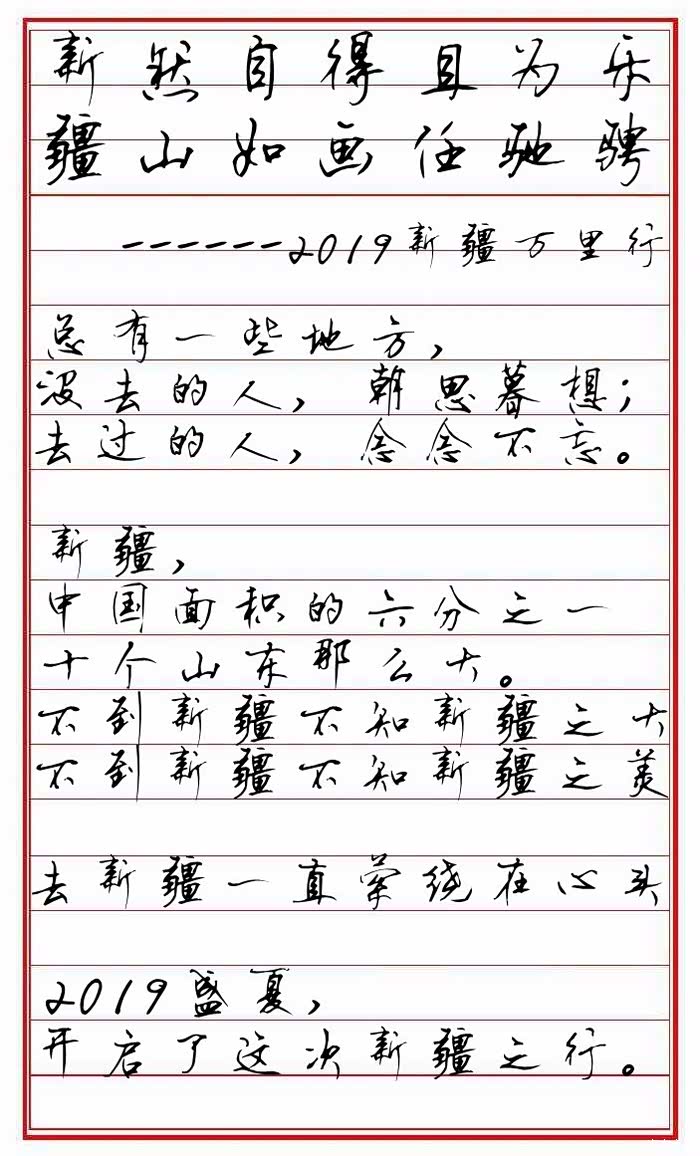 新然自得且为乐
疆山如画任驰骋
------2019新疆万里行
总有一些地方,
没去的人, 朝思暮想;
去过的人, 念念不忘。
新疆,
中国面积的六分之一
十个山东那么大。
不到新疆不知新疆之大
不到新疆不知新疆之美
去新疆一直萦绕在心头
2019盛夏,
开启了这次新疆之行。